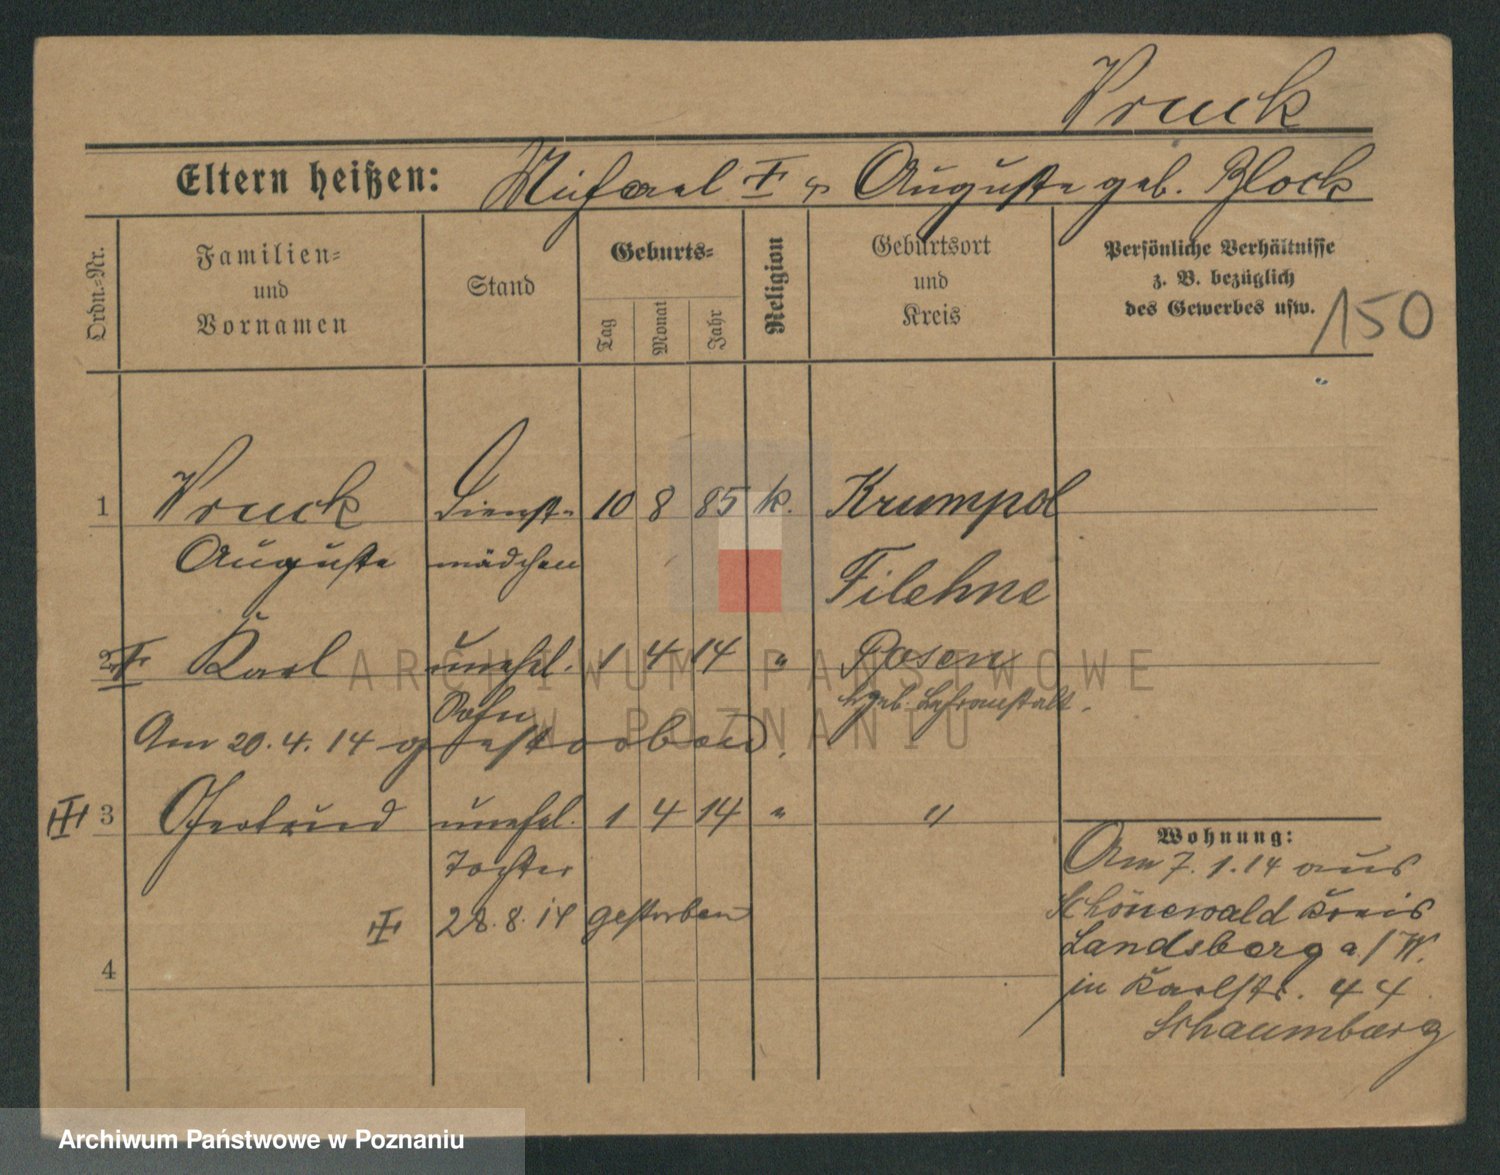 Pruck
Eltern heißen: Michael † u Auguste geb. Block
Ordn.-Nr.
Familien-
und
Vornamen
Stand
Geburts-
Tag
Monat
Jahr
Religion
Geburtsort
und
Kreis
Persönliche Verhältnisse
z. B. bezüglich
des Gewerbes usw.
150
1 Pruck Dienst- 10 8 85 k. Krumpol
Auguste mädchen Filehne
2 † Karl unehel. 1 4 14 " Posen
Sohn Hgeb. Lehranstalt.
Am 20.4.14 gestorben.
3 Gertrud unehel. 1 4 14 " "
Tochter
28.8.14 gestorben
4
Wohnung:
Am 7.1.14 aus
Schönewald Kreis
Landsberg a/W.
in Karlstr. 44
Schaumberg
ARCHIWUM PAŃSTWOWE
W POZNANIU
Archiwum Państwowe w Poznaniu